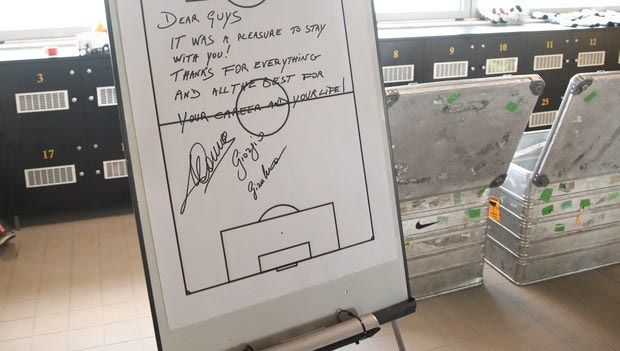 DEAR GUYS
IT WAS A PLEASURE TO STAY
WITH YOU!
THANKS FOR EVERYTHING
AND ALL THE BEST FOR
YOUR CAREER AND YOUR LIFE!
Giorgio
Gianluca
3
17
8
9
10
11
12
25